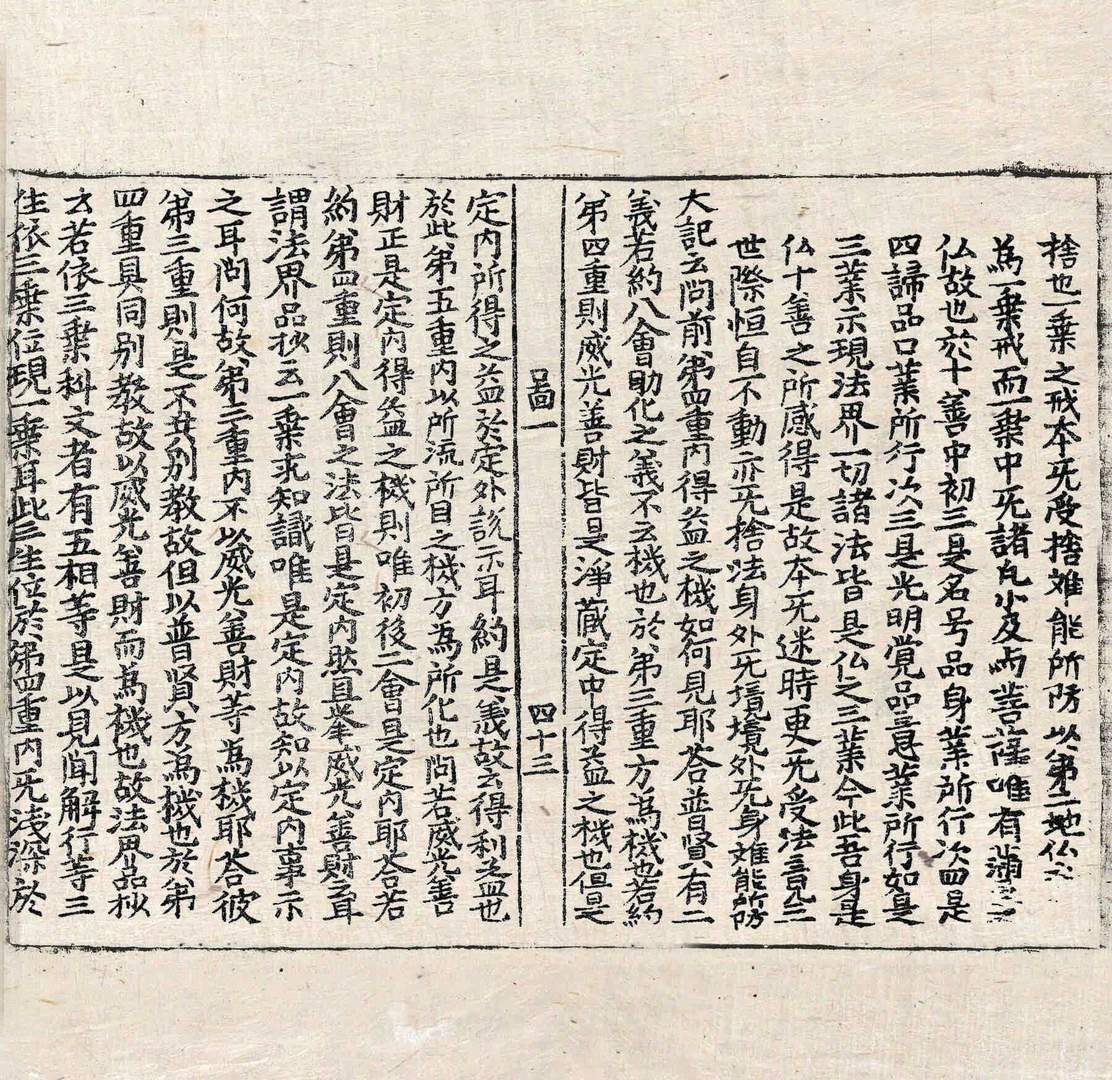 捨也一乗之戒本无受捨难能所防以第一地仏
為一乗戒而一乗中无諸凡小及而菩薩唯有滿
仏故也於十善中初三是名号品身業所行次四是
四諦品口業所行次三是光明覺品意業所行如是
三業示現法界一切諸法皆是仏之三業今此吾身是
仏十善之所感得是故本无迷時更无受法言九三
世際恒自不動亦无捨法身外无境境外无身难能所防
大記云問前第四重内得益之機如何見耶答普賢有二
義若約八會助化之義不云機也於第三重方為機也若約
第四重則威光善財皆是淨蔵定中得益之機也但是
啚一　四十三
定内所得之益於定外說示耳約是義故云得利益也
於此第五重内以所流所目之機方為所化也問若威光善
財正是定内得益之機則唯初後二會是定内耶答若
約第四重則八會之法皆是定内然且举威光善財之耳
謂法界品抄云一乗求知識唯是定内故知以定内事示
之耳問何故第三重内不以威光善財等為機耶答彼
第三重則是不共別教故但以普賢方為機也於第
四重具同別教故以威光善財而為機也故法界品抄
云若依三乗科文者有五相等是以見聞解行等三
生依三乗位現一乗耳此三生位於第四重内无淺深於